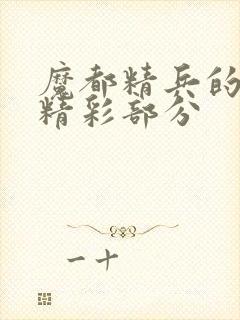 魔都精兵的
精彩部分
一十